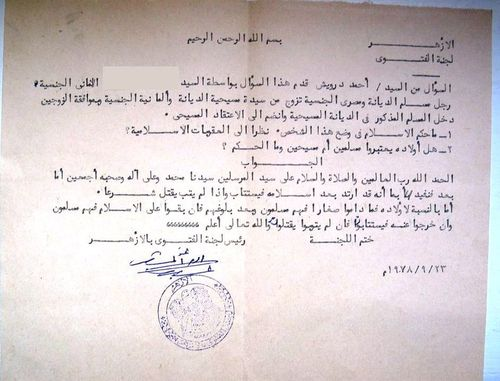 الازهـــر
لجنة الفتـــوى
بسم الله الرحمن الرحيم
السؤال من السيد / أحمد درويش قدم هذا السؤال بواسطة السيد الالمانى الجنسية
رجل مسلم الديانة ومصرى الجنسية تزوج من سيدة مسيحية الديانة وألمانية الجنسية وبموافقة الزوجين
دخل المسلم المذكور فى الديانة المسيحية وانضم الى الاعتقاد المسيحى
١ - ماحكم الاسلام فى وضع هذا الشخص نظرا الى العقوبات الاسلامية؟
٢ - هل أولاده يعتبروا مسلمين أم مسيحين وما الحكم؟
الجـــواب
الحمد الله رب العالمين والصلاة والسلام على سيد المرسلين سيدنا محمد وعلى آله وصحبه أجمعين أما
بعد فنفيد بأنه قد ارتد بعد اسلامه فيستتاب فاذا لم يتب يقتل شرعا
أما بالنسبة لاولاده فما داموا صغارا فهم مسلمون وبعد بلوغهم فان بقوا على الاسلام فهم مسلمون
وان خرجوا عنه فيستتابوا فان لم يتوبوا يقتلوا والله تعالى أعلم
ختم اللجنـــة
رئيس لجنة الفتوى بالازهـــر
١٩٧٨/٩/٢٣م